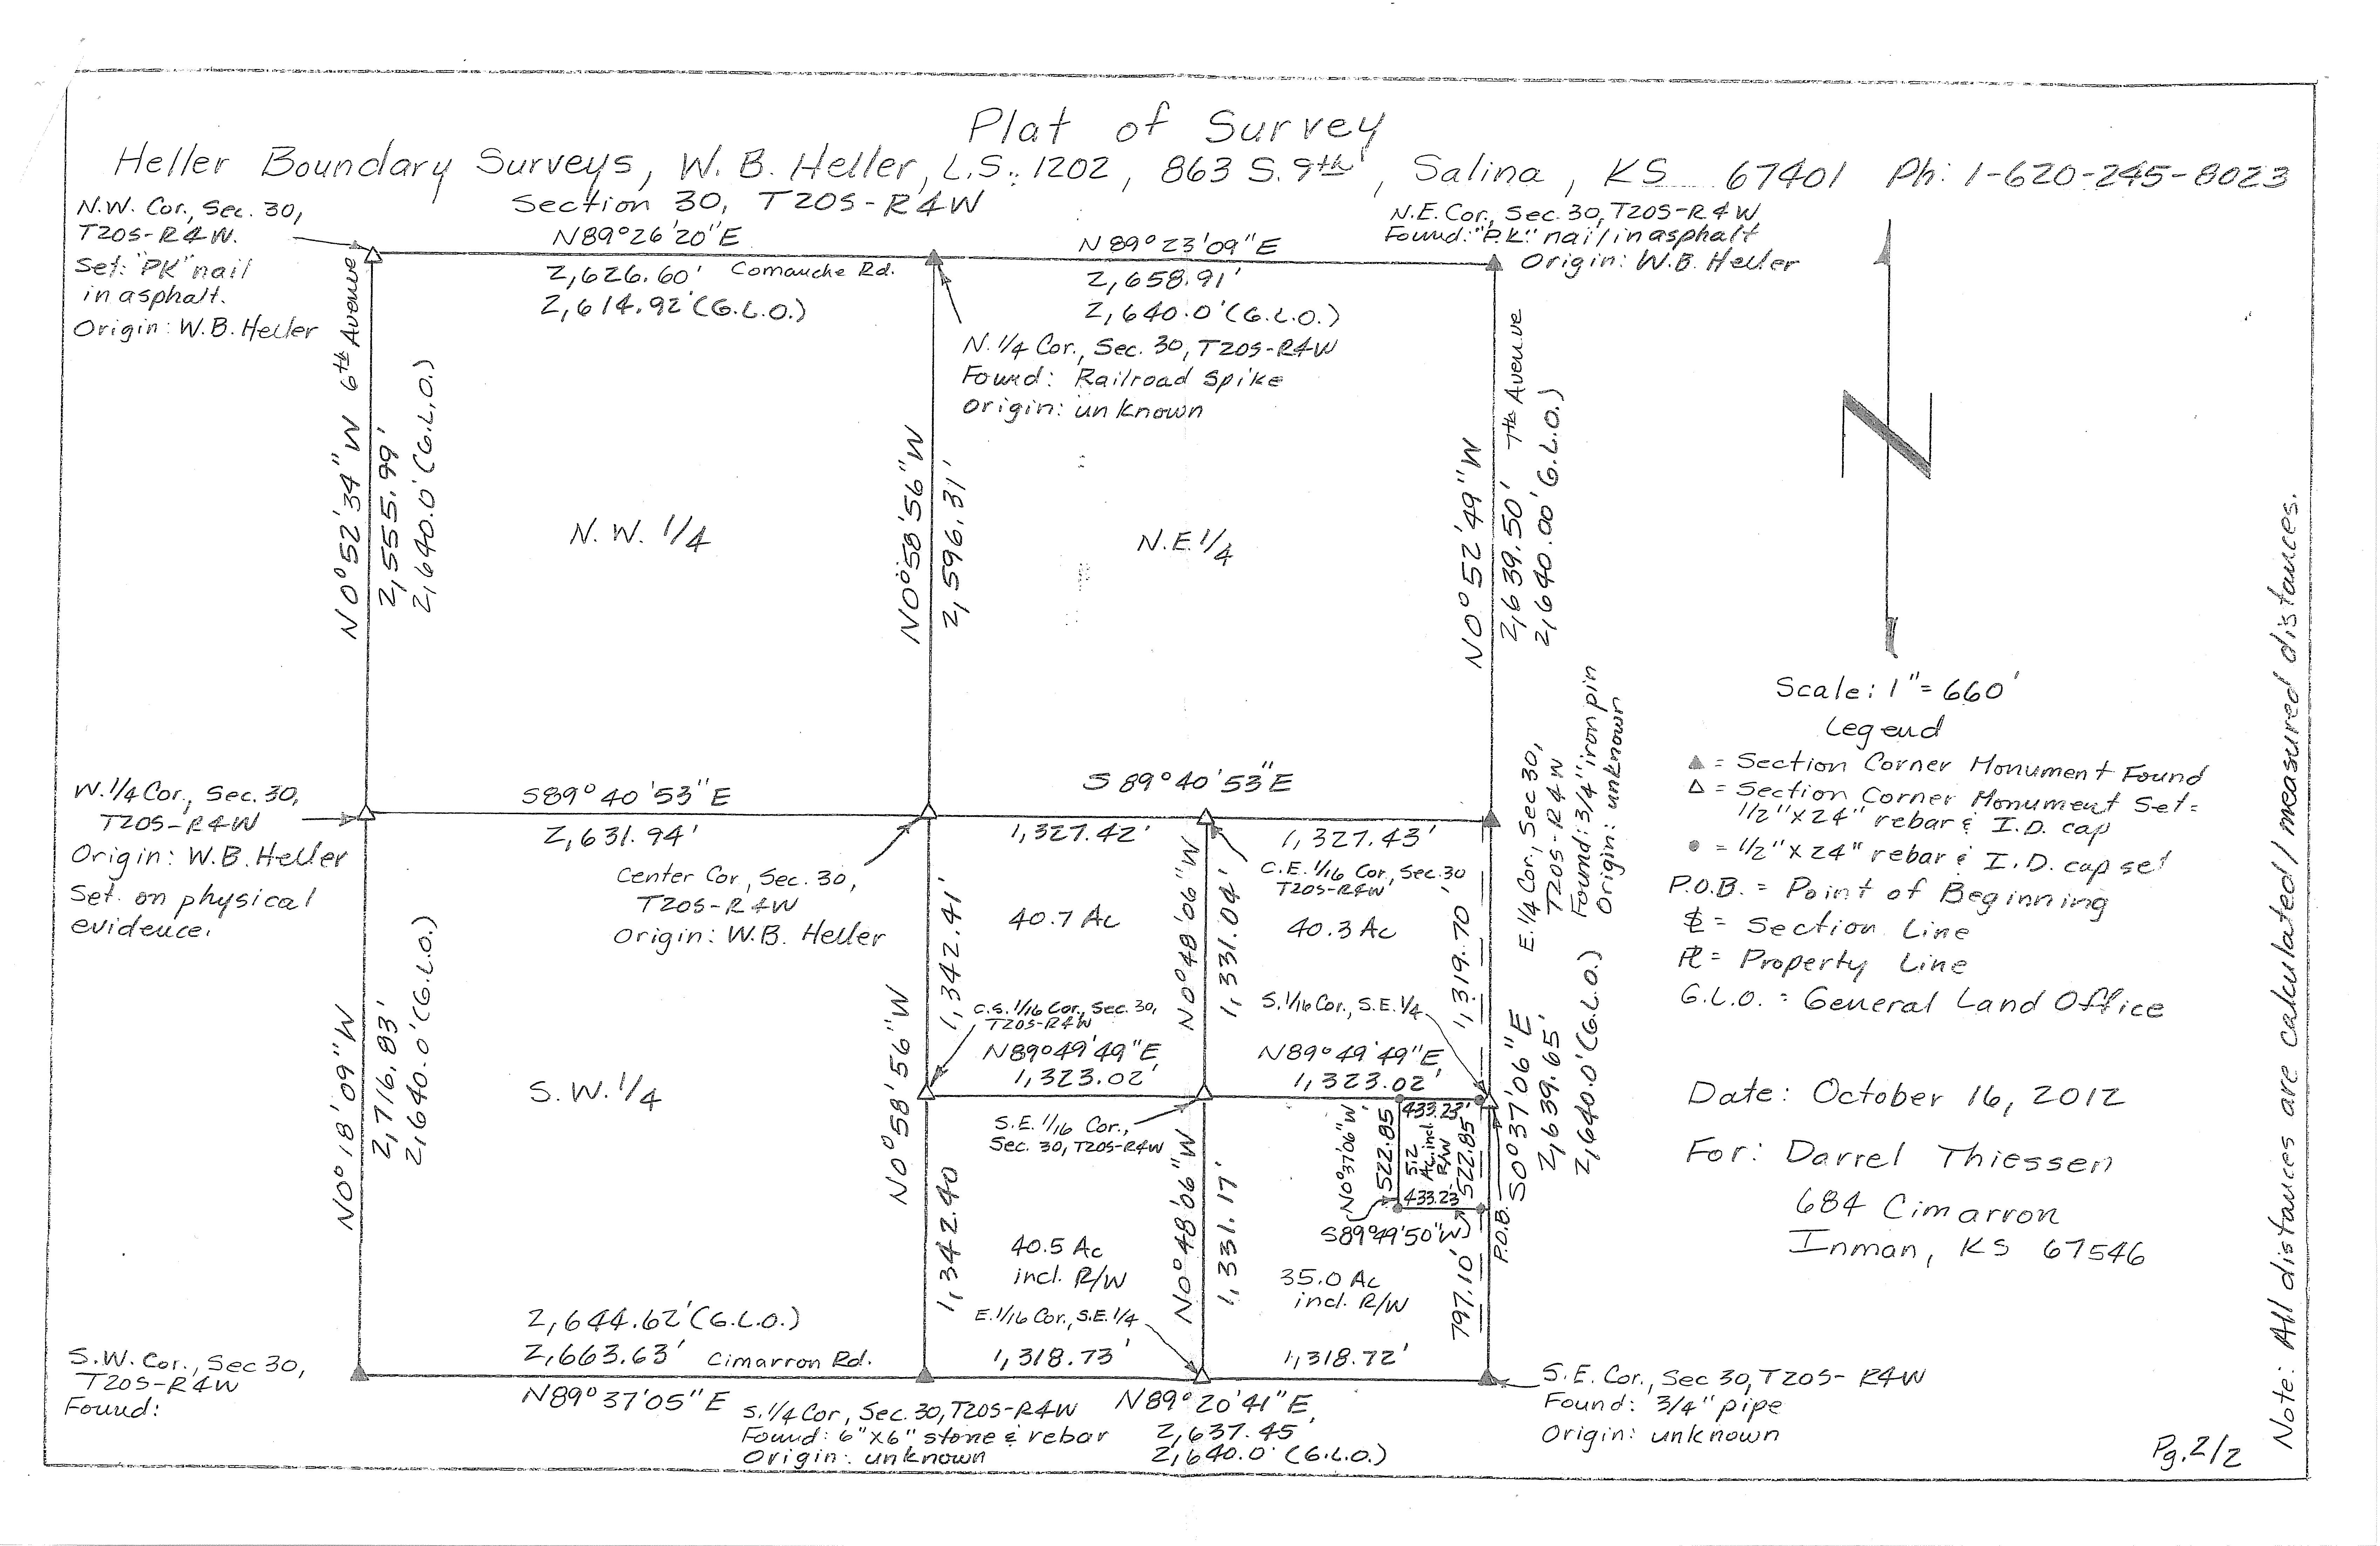 Plat of Survey
Heller Boundary Surveys, W. B. Heller, L.S.: 1202, 863 S. 9th, Salina, KS 67401 Ph: 1-620-245-8023
Section 30, T20S-R4W
N.W. Cor., Sec. 30,
T20S-R4W.
Set: "PK" nail
in asphalt.
Origin: W.B. Heller
N89°26'20"E
2,626.60' Comanche Rd.
2,614.92' (G.L.O.)
N89°23'09"E
2,658.91'
2,640.0' (G.L.O.)
N.E. Cor., Sec. 30, T20S-R4W
Found: "P.K." nail in asphalt
Origin: W.B. Heller
N. 1/4 Cor., Sec. 30, T20S-R4W
Found: Railroad Spike
Origin: unknown
6th Avenue
N0°52'34"W
2,555.99'
2,640.0' (G.L.O.)
N0°58'56"W
2,596.31'
7th Avenue
N0°52'49"W
2,639.50'
2,640.00' G.L.O.)
N.W. 1/4
N.E. 1/4
Scale: 1"=660'
Legend
▲ = Section Corner Monument Found
△ = Section Corner Monument Set=
1/2"x24" rebar & I.D. cap
● = 1/2"x24" rebar & I.D. cap set
P.O.B. = Point of Beginning
= Section Line
= Property Line
G.L.O. = General Land Office
W. 1/4 Cor., Sec. 30,
T20S-R4W
Origin: W.B. Heller
Set on physical
evidence.
S89°40'53"E
2,631.94'
S89°40'53"E
1,327.42'
1,327.43'
Center Cor, Sec. 30,
T20S-R4W
Origin: W.B. Heller
C.E. 1/16 Cor, Sec. 30
T20S-R4W
E. 1/4 Cor, Sec 30,
T20S-R4W
Found: 3/4" iron pin
Origin: unknown
40.7 Ac
40.3 Ac
1,342.41'
N0°48'06"W
1,331.04'
1,319.70'
N0°18'09"W
2,716.83'
2,640.0' (G.L.O.)
N0°58'56"W
C.S. 1/16 Cor, Sec. 30,
T20S-R4W
S. 1/16 Cor., S.E. 1/4
N89°49'49"E
1,323.02'
N89°49'49"E
1,323.02'
S.W. 1/4
S.E. 1/16 Cor.,
Sec. 30, T20S-R4W
N0°37'06"W
522.85
433.23'
5.2
Ac. incl.
R/W
522.85'
433.23'
S89°49'50"W
P.O.B.
S0°37'06"E
2,639.65'
2,640.0' (G.L.O.)
1,342.40
N0°48'06"W
1,331.17'
40.5 Ac
incl. R/W
35.0 Ac
incl. R/W
797.10'
E. 1/16 Cor., S.E. 1/4
2,644.62' (G.L.O.)
2,663.63' Cimarron Rd.
1,318.73'
1,318.72'
S.W. Cor., Sec 30,
T20S-R4W
Found:
N89°37'05"E
S. 1/4 Cor, Sec. 30, T20S-R4W
Found: 6"x6" stone & rebar
Origin: unknown
N89°20'41"E
2,637.45'
2,640.0' (G.L.O.)
S.E. Cor., Sec 30, T20S-R4W
Found: 3/4" pipe
Origin: unknown
Date: October 16, 2012
For: Darrel Thiessen
684 Cimarron
Inman, KS 67546
Note: All distances are calculated/measured distances.
Pg. 2/2